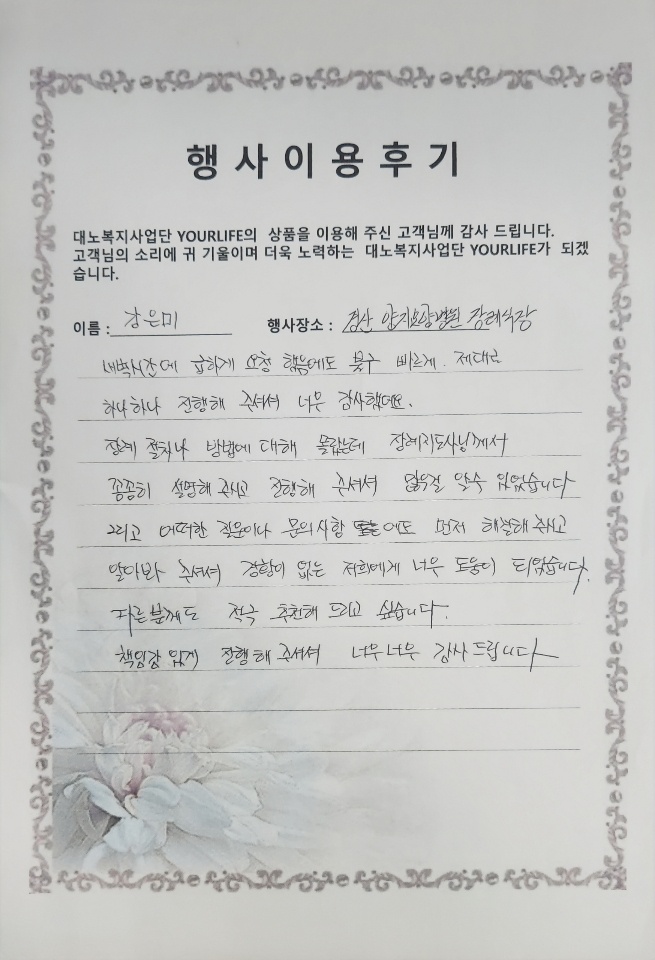 행사이용후기
대노복지사업단 YOURLIFE의 상품을 이용해 주신 고객님께 감사 드립니다.
고객님의 소리에 귀 기울이며 더욱 노력하는 대노복지사업단 YOURLIFE가 되겠
습니다.
이름 : 강은미 행사장소 : 경산 양지요양병원 장례식장
새벽시간에 급하게 요청 했음에도 불구 빠르게. 제대로
하나하나 진행해 주셔서 너무 감사했어요.
장례 절차나 방법에 대해 몰랐는데 장례지도사님께서
꼼꼼히 설명해 주시고 진행해 주셔서 많은걸 알수 있었습니다
그리고 어떠한 질문이나 문의사항 에도 먼저 해결해 주시고
알아봐 주셔서 경황이 없는 저희에게 너무 도움이 되었습니다.
다른분께도 적극 추천해 드리고 싶습니다.
책임감 있게 진행해 주셔서 너무너무 감사드립니다